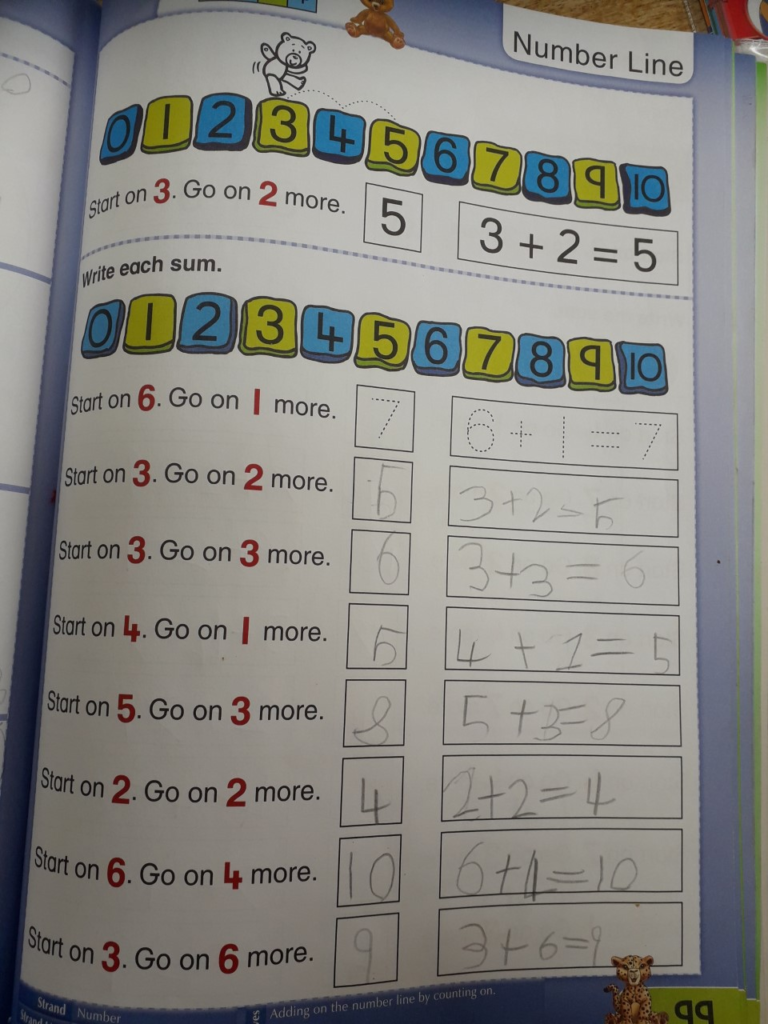 Number Line
0 1 2 3 4 5 6 7 8 9 10
Start on 3. Go on 2 more. 5 3 + 2 = 5
Write each sum.
0 1 2 3 4 5 6 7 8 9 10
Start on 6. Go on 1 more. 7 6 + 1 = 7
Start on 3. Go on 2 more. 5 3+2=5
Start on 3. Go on 3 more. 6 3+3= 6
Start on 4. Go on 1 more. 5 4 + 1 = 5
Start on 5. Go on 3 more. 8 5 +3=8
Start on 2. Go on 2 more. 4 2+2=4
Start on 6. Go on 4 more. 10 6+4=10
Start on 3. Go on 6 more. 9 3+6=9
Strand Number
Adding on the number line by counting on.
99